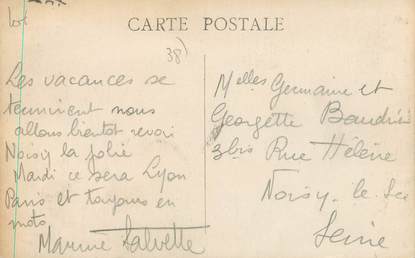 CARTE POSTALE
38)
Les vacances se
terminent nous
allons bientôt revoir
Noisy la jolie
Mardi ce sera Lyon
Paris et toujours en
moto
Melles Germaine et
Georgette
3bis Rue Hélène
Noisy-le-Sec
Seine